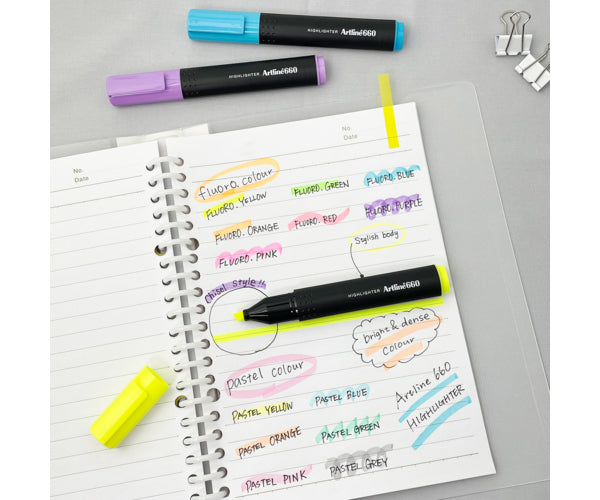 HIGHLIGHTER Artline660
HIGHLIGHTER Artline660
No.
Date
No.
Date
fluoro colour
FLUORO. YELLOW
FLUORO. GREEN
FLUORO. BLUE
FLUORO. ORANGE
FLUORO. RED
FLUORO. PURPLE
FLUORO. PINK
Stylish body
Chisel Style!!
HIGHLIGHTER Artline660
bright & dense
colour
pastel colour
PASTEL YELLOW
PASTEL BLUE
PASTEL ORANGE
PASTEL GREEN
PASTEL PINK
PASTEL GREY
Artline 660
HIGHLIGHTER